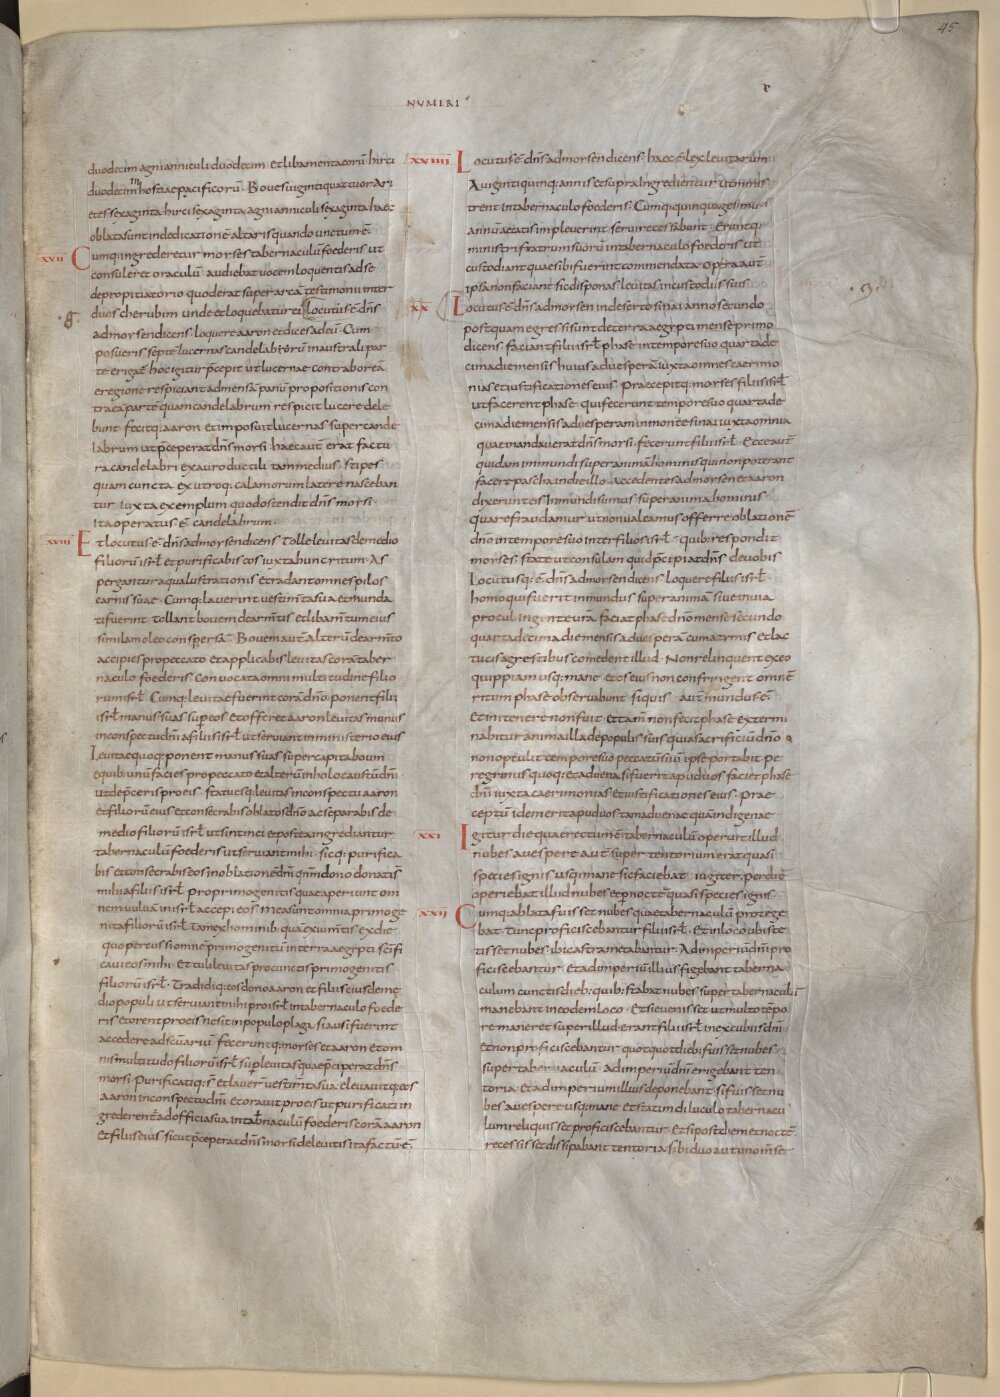 45
NUMERI
duodecim agni anniculi duodecim · et libamenta eorū hirci
duodecim hostiae pacificorū · Boues uiginti quattuor Ari
etes sexaginta hirci sexaginta agni anniculi sexaginta haec
oblata sunt in dedicationē altaris quando unctum ē
XVII Cumq; ingrederetur moyses tabernaculū foederis ut
consuleret oraculū audiebat uocem loquentis ad se
de propitiatorio quod erat super arcā testimonii inter
duos cherubim unde et loquebatur ei Locutus ē dn̄s
ad moysen dicens · loquere aaron et dices ad eū · Cum
posueris septē lucernas candelabrum in australi par
te erigat̄ hoc igitur p̄cepit ut lucernae contra boreā
e regione respiciant ad mensā panū propositionis con
tra eā partē quam candelabrum respicit lucere debe
bunt · fecitq; aaron et imposuit lucernas super cande
labrum ut p̄ceperat dn̄s moysi · haec aut̄ erat factu
ra candelabri ex auro ductili tam medius stipes
quam cuncta ex utroq; calamorum latere nasceban
tur iuxta exemplum quod ostendit dn̄s moysi ·
ita operatus ē candelabrum ·
XVIII Et locutus ē dn̄s ad moysen dicens Tolle leuitas de medio
filiorū isrl̄ et purificabis eos iuxta hunc ritum · As
pergantur aqua lustrationis et radant omnes pilos
carnis suae · Cumq; lauerint uestimta sua et munda
ti fuerint tollant bouem de armtis et libamtum eius
similam oleo conspersā · Bouem aut̄ alterū de armto
accipies pro peccato et applicabis leuitas corā taber
naculo foederis · conuocata omni multitudine filio
rum isrl̄ · Cumq; leuitae fuerint corā dn̄o ponent filii
isrl̄ manus suas sup eos et offeret aaron leuitas munus
in conspectu dn̄i a filiis isrl̄ ut seruiant in ministerio eius
Leuitae quoq; ponent manus suas super capita boum
e quib; unū facies pro peccato et alterū in holocaustū dn̄i ·
ut depceris pro eis · statuesq; leuitas in conspectu aaron
et filiorū eius et consecrabis oblatos dn̄o ac separabis de
medio filiorū isrl̄ ut sint mei et postea ingrediantur
tabernaculū foederis ut seruiant mihi · sicq; purifica
bis et consecrabis eos in oblationē dn̄i qnm dono donati s̄
mihi a filiis isrl̄ pro primogenitis quae aperiunt om
nem uuluā in isrl̄ accepi eos mea sunt omnia primoge
nita filiorū isrl̄ tam ex hominib; quā ex iumtis ex die
quo percussi omne primogenitū in terra aegypti scifi
caui eos mihi · Et tuli leuitas pro cunctis primogenitis
filiorū isrl̄ · Tradidiq; eos dono aaron et filiis eius de me
dio populi ut seruiant mihi pro isrl̄ in tabernaculo foede
ris et orent pro eis ne sit in populo plaga si ausi fuerint
accedere ad scuariū fecerunt q; moyses et aaron et om
nis multitudo filiorū isrl̄ sup leuitas quae p̄ceperat dn̄s
moysi · Purificatiq; s̄ et lauer̄ uestimta sua eleuauitq; eos
aaron in conspectu dn̄i et orauit pro eis ut purificati in
grederent̄ ad officia sua in tab̄naculū foederis corā aaron
et filiis eius · sicut p̄ceperat dn̄s moysi de leuitis ita factū ē ·
XVIIII Locutus ē dn̄s ad moysen dicens · haec ē lex leuitarum
A uiginti quinq; annis et supra Ingredientur ut minis
trent in tabernaculo foederis · Cumq; quinquagesimū
annū aetatis impleuerint seruire cessabunt · Eruntq;
ministri fratrum suorū in tabernaculo foederis ut
custodiant quae sibi fuerint commendata · opera aut̄
ipsa non faciant sic dispones leuitas in custodiis suis
XX Locutus ē dn̄s ad moysen in deserto sinai anno secundo
postquam egressi sunt de terra aegypti mense primo
dicens · faciant filii isrl̄ phase in tempore suo quarta de
cima die mensis huius ad uesperā iuxta omnes caerimo
nias et iustificationes eius Praecepitq; moyses filiis isrl̄
ut facerent phase · qui fecerunt tempore suo quarta de
cima die mensis ad uesperam in monte sinai iuxta omnia
quae mandauerat dn̄s moysi · fecerunt filii isrl̄ · Et ecce aut̄
quidam immundi super animā hominis qui non poterant
facere pascha in die illo · accedentes ad moysen et aaron
dixerunt eis Inmundi sumus super anima hominis
Quare fraudamur ut non ualeamus offerre oblationē
dn̄o in tempore suo inter filios isrl̄ · quib; respondit
moyses · state ut consulam quid p̄cipiat dn̄s de uobis
Locutusq; ē dn̄s ad moysen dicens · loquere filiis isrl̄ ·
homo qui fuerit inmundus super animā siue in uia
procul in gente urā · faciat phase dn̄o mense secundo
quarta decima die mensis ad uesperā cum azymis et lac
tucis agrestibus comedent illud · Non relinquent ex eo
quippiam usq; mane et os eius non confringent omnē
ritum phase obseruabunt siquis aut̄ mundus ē
et in itenere non fuit · et tam̄ non fecit phase extermi
nabitur anima illa de populis suis quia sacrificiū dn̄o
non optulit tempore suo peccatū suū ipse portabit pe
regrinus quoq; et aduena si fuerit apud uos faciet phase
dn̄i iuxta caerimonias et iustificationes eius · Prae
ceptū idem erit apud uos tam aduenae quā indigenae
XXI Igitur die qua erectum ē tabernaculū operuit illud
nubes a uespere aut̄ super tentorium erat quasi
species ignis usq; mane sic fiebat iugiter · per diē
operiebat illud nubes et p̄ noctē quasi species ignis ·
XXII Cumq; ablata fuisset nubes quae tabernaculū protege
bat · Tunc proficiscebantur filii isrl̄ · Et in loco ubi ste
tisset nubes · ibi castrametabantur · Ad imperiū dn̄i pro
ficiscebantur · et ad imperiū illius figebant taberna
culum cunctis dieb; quib; stabat nubes super tabernaculū
manebant in eodem loco · Et si euenisset ut multo tēpo
re maneret super illud · erant filii isrl̄ in excubiis dn̄i
et non proficiscebantur quotquot dieb; fuisset nubes
super tabernaculū · ad imperiū dn̄i erigebant ten
toria · et ad imperium illius deponebant si fuisset nu
bes a uespere usq; mane et statim diluculo tabernacu
lum reliquisset proficiscebantur · Et si post diem et noctē
recessisset dissipabant tentoria · si biduo aut uno m̄se